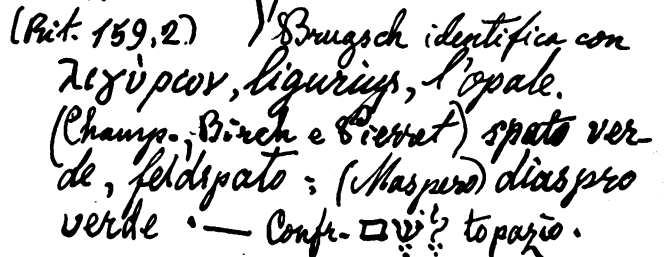 (Rit. 159,2.) ) Brugsch identifica con
λιγὺριον, ligurius, l'opale.
(Champ., Birch e Pierret) spato ver-
de, feldspato; (Maspero) diaspro
verde. — Confr. לֶשֶׁם topazio.